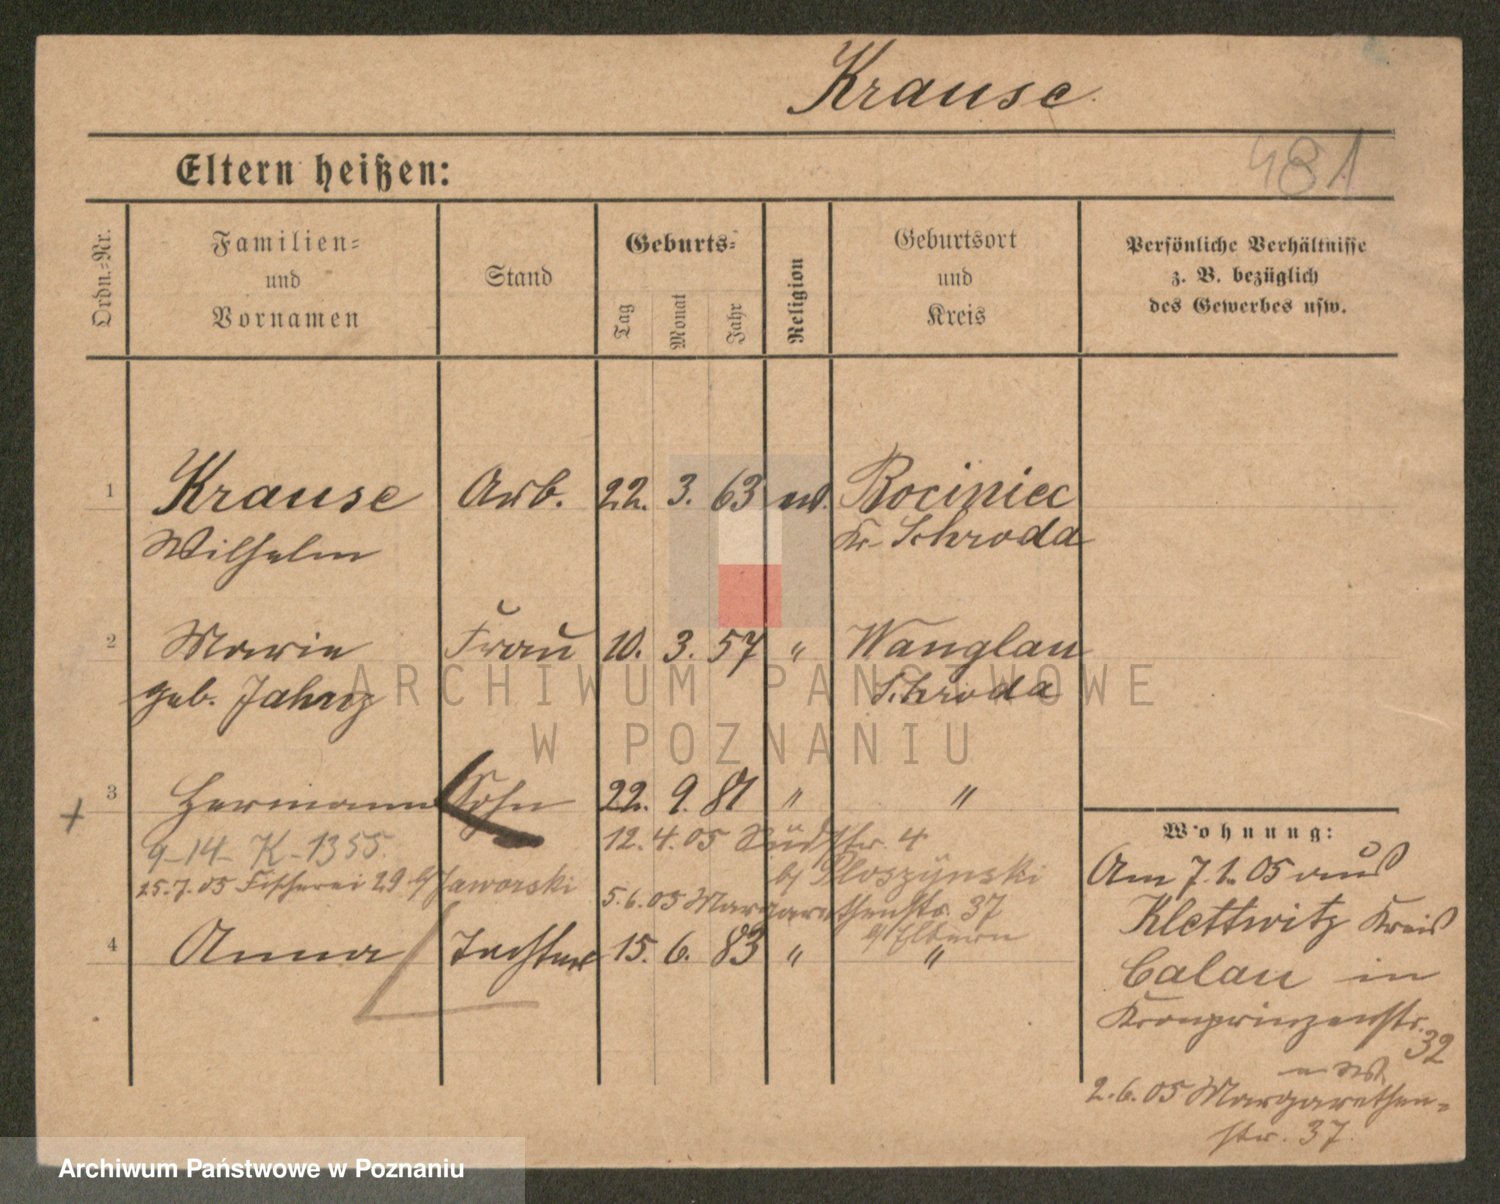 Krause
481
Eltern heißen:
Ordn.-Nr.
Familien-
und
Vornamen
Stand
Geburts-
Tag
Monat
Jahr
Religion
Geburtsort
und
Kreis
Persönliche Verhältnisse
z. B. bezüglich
des Gewerbes usw.
1 Krause Arb. 22. 3. 63 ev. Rociniec
Wilhelm Kr. Schroda
2 Marie Frau 10. 3. 57 " Wanglau
geb. Jahnz Schroda
3 Hermann Sohn 22. 9. 81 " "
+
9-14- K-1355.
12.4.05 Südstr. 4
b/ Ploszynski
25.7.05 Fischerei 29 b/ Jaworski
5.6.05 Margarethenstr. 37
b/ Eltern
4 Anna Tochter 15. 6. 83 " "
Wohnung:
Am 7.1.05 aus
Klettwitz Kreis
Calau in
Kronprinzenstr.
32
2.6.05 Margarethen-
str. 37.
ARCHIWUM PAŃSTWOWE
W POZNANIU
Archiwum Państwowe w Poznaniu